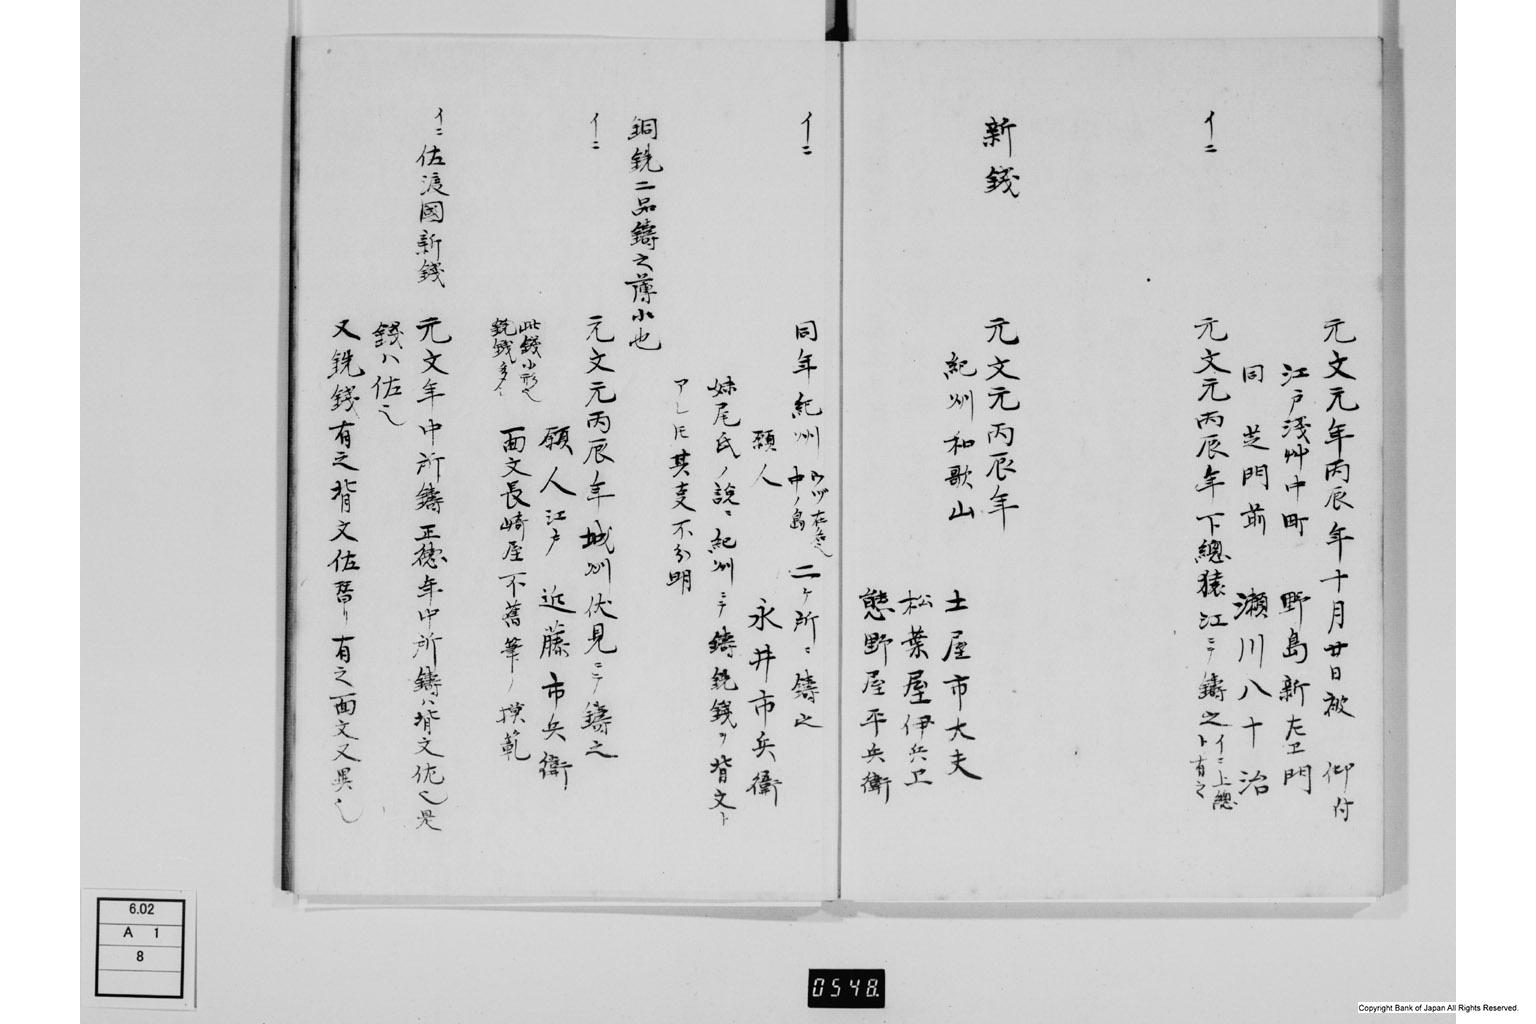 元文元年丙辰年十月廿日被　仰付
江戸淺艸中町　野島新左ヱ門
同　芝門前　瀬川八十治
イニ　元文元丙辰年下總猿江ニテ鑄之イニ上總ト有之
新錢　元文元丙辰年
紀州和歌山　土屋市大夫
松葉屋伊兵卫
熊野屋平兵衛
イニ　同年紀州中ノ島二ケ所ニ鑄之
願人　永井市兵衛
妹尾氏ノ説ニ紀州ニテ鑄銑錢ヲ背文ト
アレ𪜈其支不分明
銅銑二品鑄之薄小也
イニ　元文元丙辰年城州伏見ニテ鑄之
願人江戸　近藤市兵衛
此錢小形也
銑錢多シ
面文長崎屋不舊筆ノ摸範
イニ佐渡國新錢　元文年中所鑄正德年中所鑄ハ背文佐也是
錢ハ佐也
又銑錢有之背文佐替リ有之面文又異也
6.02
A 1
8
0548.
Copyright Bank of Japan All Rights Reserved.